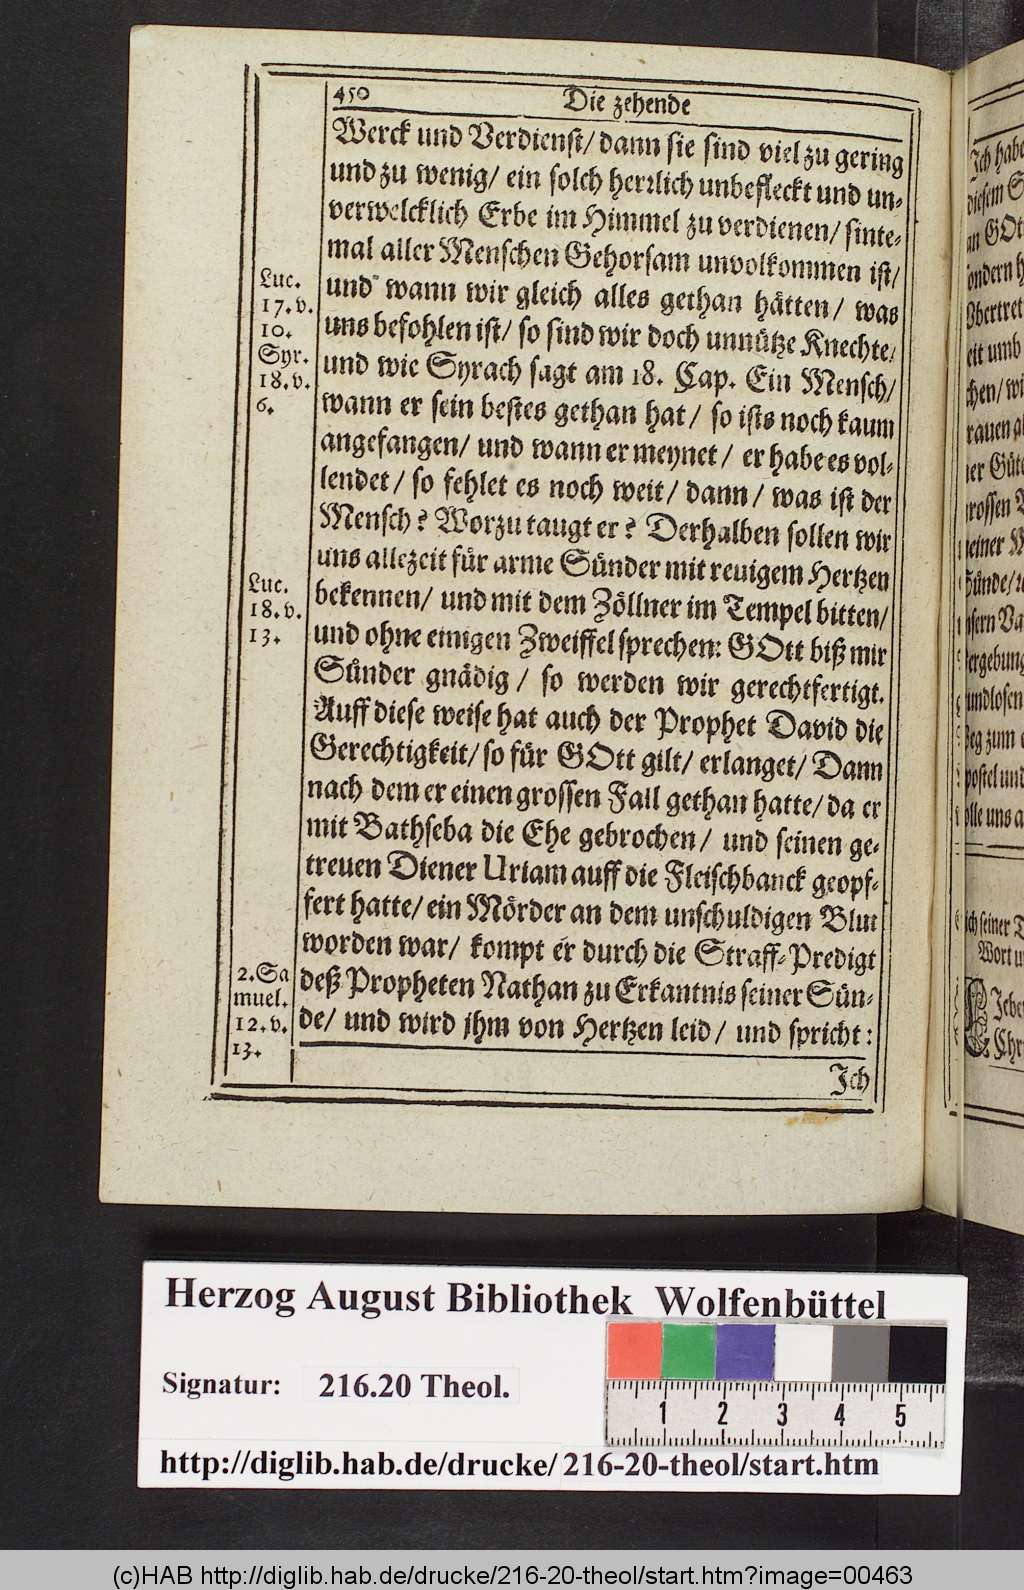 450 Die zehende
Werck und Verdienst/ dann sie sind viel zu gering
und zu wenig/ ein solch herrlich unbefleckt und un-
verwelcklich Erbe im Himmel zu verdienen/ sinte-
mal aller Menschen Gehorsam unvolkommen ist/
und wann wir gleich alles gethan hätten/ was
uns befohlen ist/ so sind wir doch unnütze Knechte/
und wie Syrach sagt am 18. Cap. Ein Mensch/
wann er sein bestes gethan hat/ so ists noch kaum
angefangen/ und wann er meynet/ er habe es vol-
lendet/ so fehlet es noch weit/ dann/ was ist der
Mensch? Worzu taugt er? Derhalben sollen wir
uns allezeit für arme Sünder mit reuigem Hertzen
bekennen/ und mit dem Zöllner im Tempel bitten/
und ohne einigen Zweiffel sprechen: GOtt biß mir
Sünder gnädig/ so werden wir gerechtfertigt.
Auff diese weise hat auch der Prophet David die
Gerechtigkeit/ so für GOtt gilt/ erlanget/ Dann
nach dem er einen grossen Fall gethan hatte/ da er
mit Bathseba die Ehe gebrochen/ und seinen ge-
treuen Diener Uriam auff die Fleischbanck geopf-
fert hatte/ ein Mörder an dem unschuldigen Blut
worden war/ kompt er durch die Straff-Predigt
deß Propheten Nathan zu Erkantnis seiner Sün-
de/ und wird jhm von Hertzen leid/ und spricht:
Jch
Luc.
17. v.
10.
Syr.
18. v.
6.
Luc.
18. v.
13.
2. Sa
muel.
12. v.
13.
Jch habe
diesem S
an GOt
sondern h
Vbertret
eit umb
chen/ wi
rauen al
ner Güte
grossen V
seiner M
Sünde/
nsern Va
Vergebung
undlosen
Weg zum
postel und
olle uns a
ich seiner T
Wort u
Jeber
Chri
Herzog August Bibliothek Wolfenbüttel
Signatur: 216.20 Theol.
1 2 3 4 5
http://diglib.hab.de/drucke/216-20-theol/start.htm
(c)HAB http://diglib.hab.de/drucke/216-20-theol/start.htm?image=00463